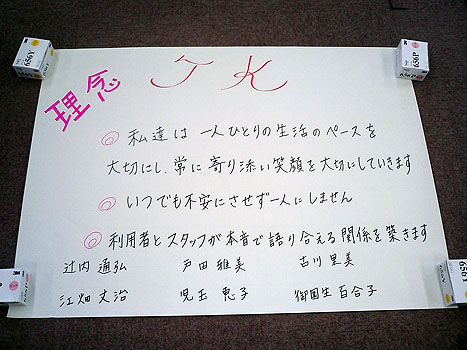 理念 JK
◎ 私達は 一人ひとりの生活のペースを
大切にし、常に寄り添い笑顔を大切にしていきます
◎ いつでも不安にさせず一人にしません
◎ 利用者とスタッフが本音で語り合える関係を築きます
辻内 通弘 戸田 雅美 古川 里美
江畑 丈治 児玉 恵子 御園生 百合子
656Y
656P
656Y
656Y